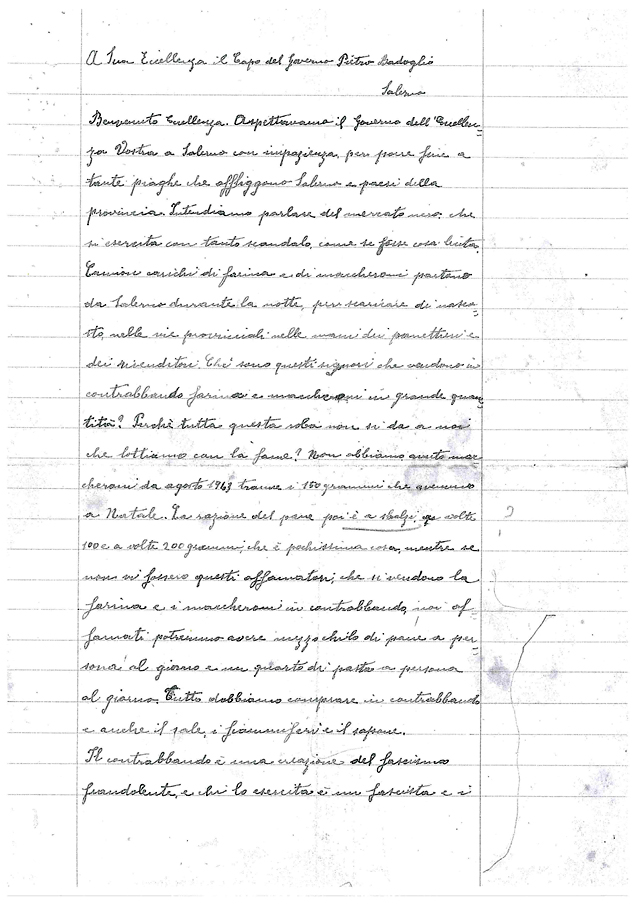 A Sua Eccellenza il Capo del Governo Pietro Badoglio
Salerno
Benvenuto Eccellenza. Aspettavamo il Governo dell'Eccellen=
za Vostra a Salerno con impazienza, per porre fine a
tante piaghe che affliggono Salerno e paesi della
provincia. Intendiamo parlare del mercato nero, che
si esercita con tanto scandalo, come se fosse cosa lecita.
Camion carichi di farina e di maccheroni partono
da Salerno durante la notte, per scaricare di nasco=
sto, nelle vie provinciali nelle mani dei panettieri e
dei rivenditori. Chi sono questi signori che vendono in
contrabbando farina e maccheroni in grande quan=
tità? Perchè tutta questa roba non si da a noi
che lottiamo con la fame? Non abbiamo avuto mac=
cheroni da agosto 1943 tranne i 150 grammi che avemmo
a Natale. La razione del pane poi è a sbalzi, a volte
100 e a volte 200 grammi, che è pochissima cosa, mentre se
non vi fossero questi affamatori, che si vendono la
farina e i maccheroni in contrabbando, noi af=
famati potremmo avere mezzo chilo di pane a per=
sona al giorno e un quarto di pasta a persona
al giorno. Tutto dobbiamo comprare in contrabbando
e anche il sale, i fiammiferi e il sapone.
Il contrabbando è una creazione del fascismo
fraudolente, e chi lo esercita è un fascista e i
?